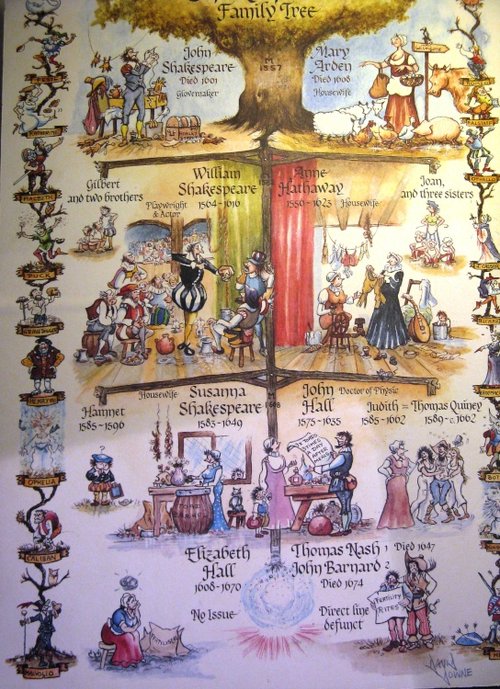 Family Tree
John
Shakespeare
Died 1601
Glovemaker
M
1557
Mary
Arden
Died 1608
Housewife
Gilbert
and two brothers
William
Shakespeare
Playwright
& Actor
1564-1616
Anne
Hathaway
1556-1623
Housewife
Joan,
and three sisters
MACBETH
PUCK
HENRY VIII
OPHELIA
CALIBAN
MALVOLIO
Hamnet
1585-1596
Housewife
Susanna
Shakespeare
1583-1649
M
1608
John
Hall
1575-1635
Doctor of Physic
Judith = Thomas Quiney
1585-1662
1589-c.1662
Elizabeth
Hall
1608-1670
No Issue
Thomas Nash 1 Died 1647
John Barnard 2
Died 1674
Direct line
defunct
FERTILITY
RITES